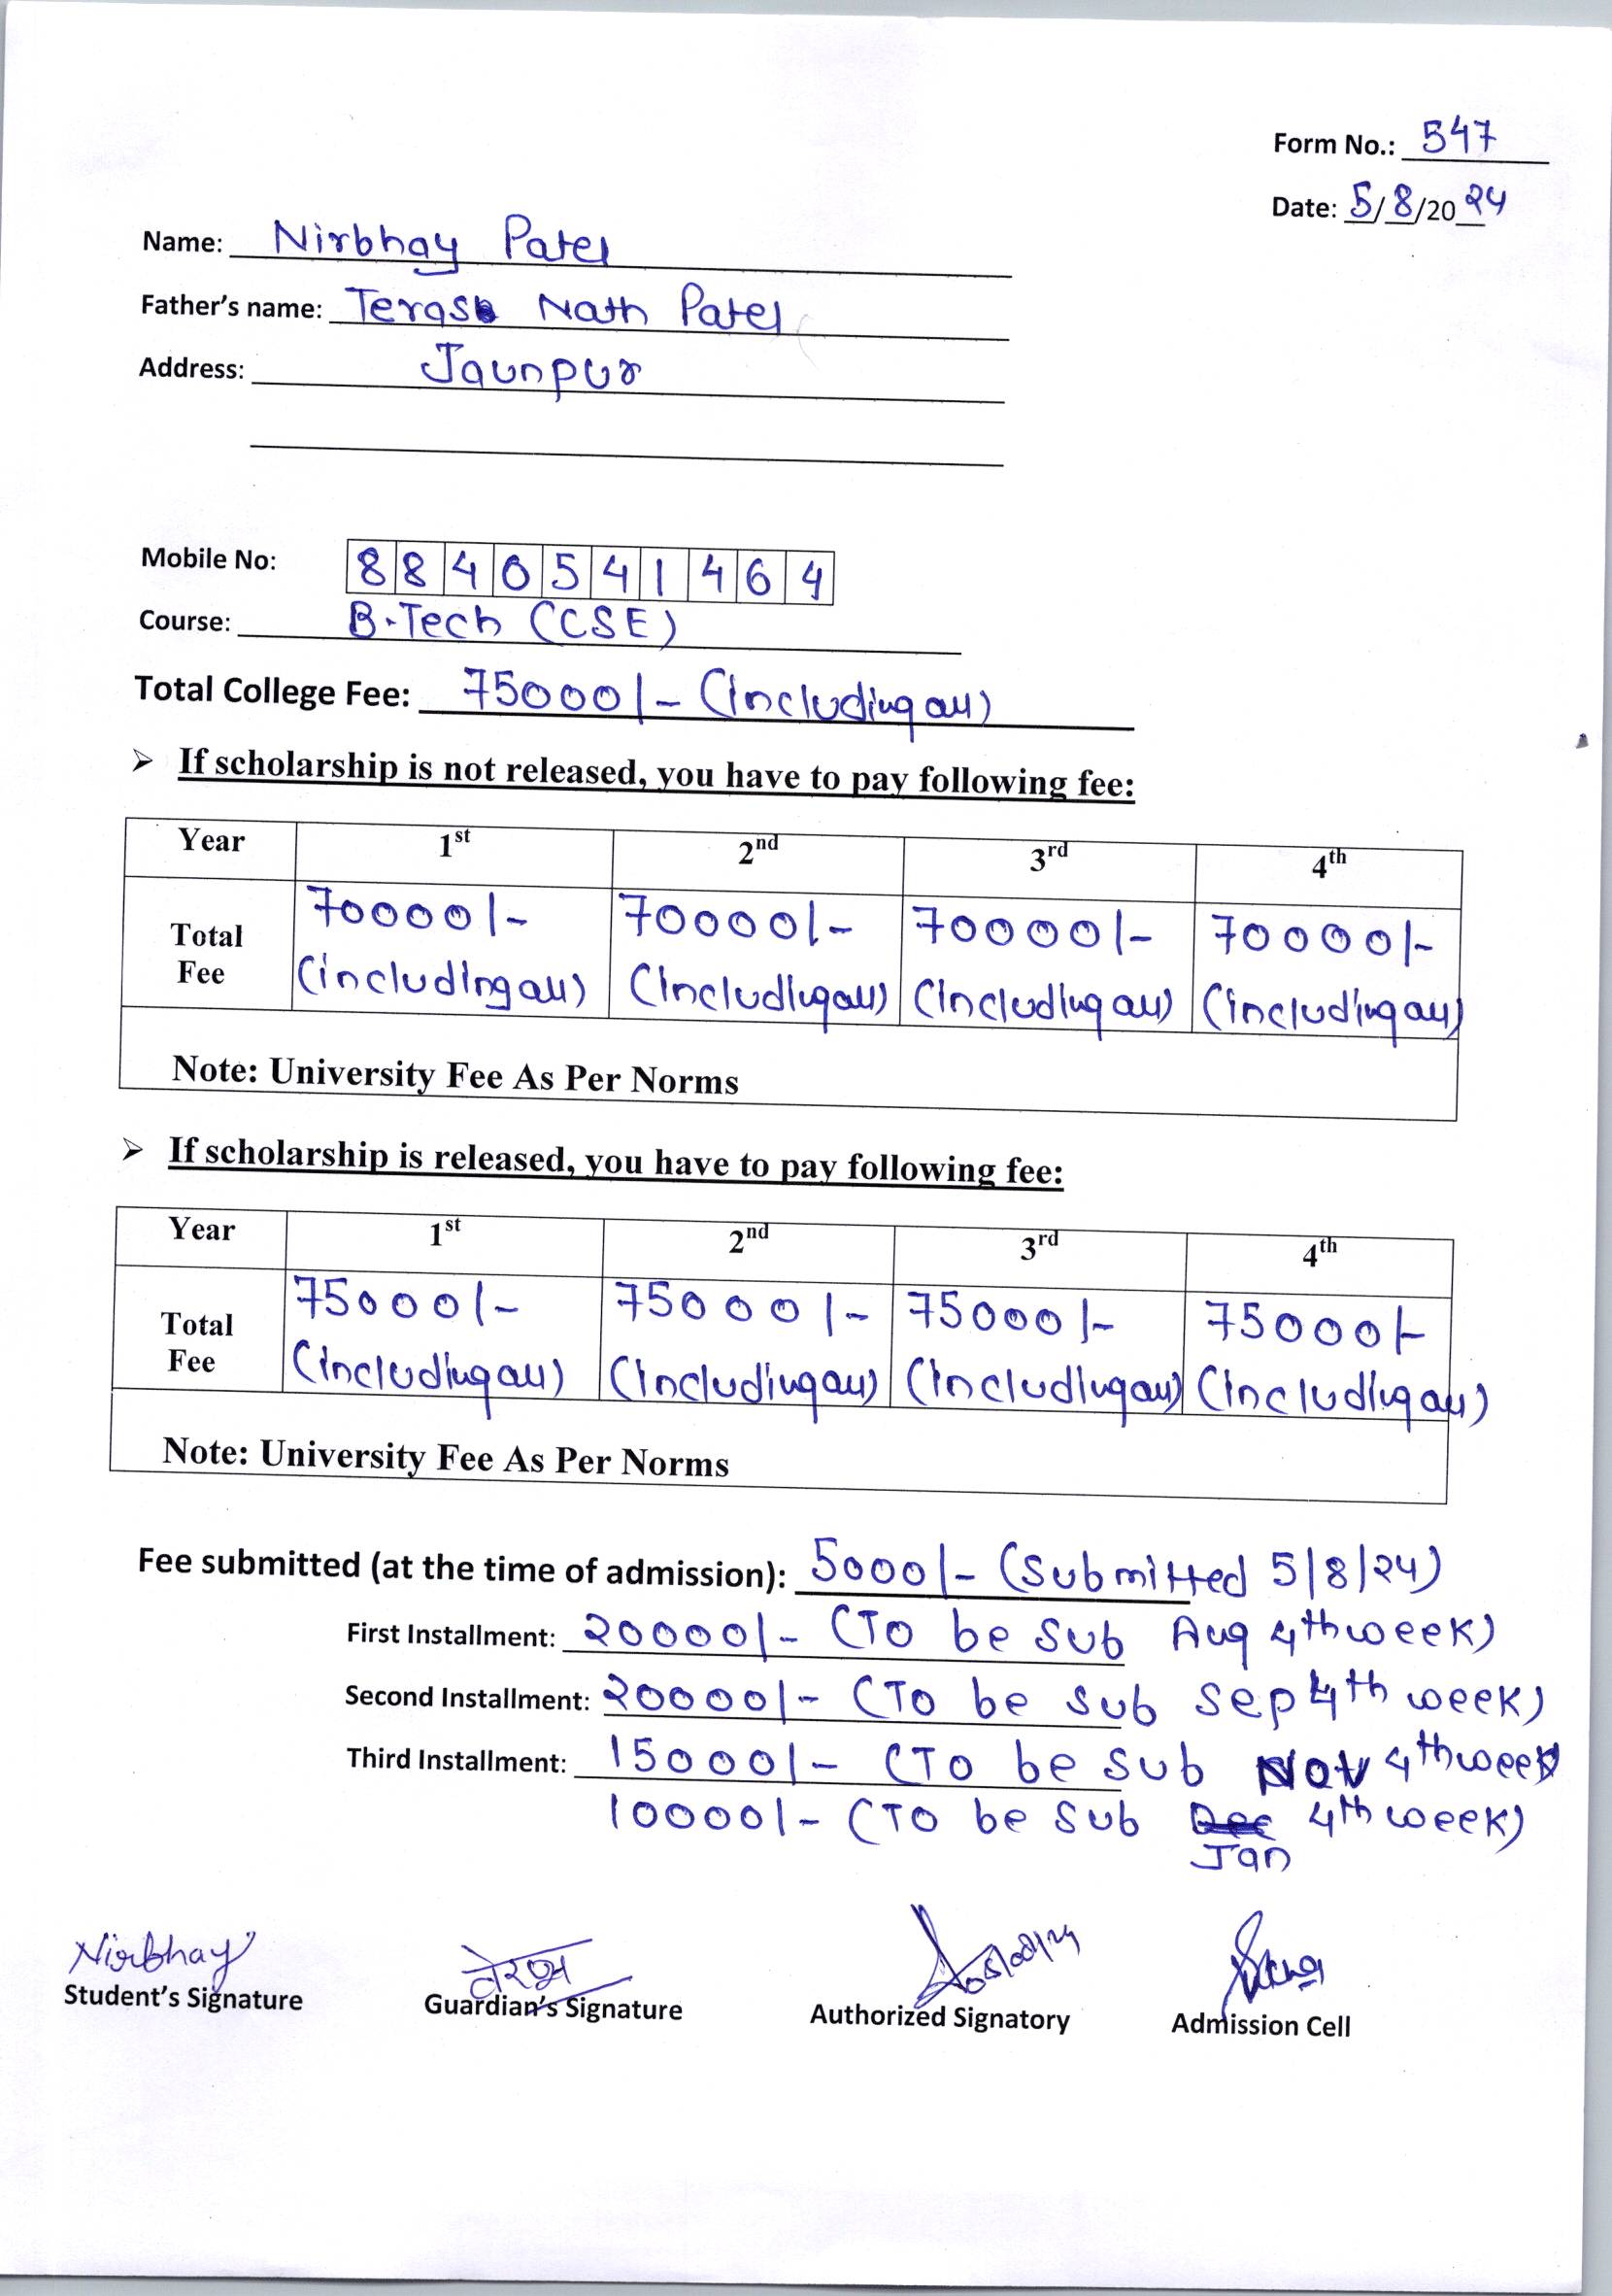 Form No.: 547
Date: 5/8/2024
Name: Nirbhay Patel
Father's name: Nath Patel
Address: Jaunpur
Mobile No: 8840541464
Course: B.Tech (CSE)
Total College Fee: 75000/- (Including all)
➢ If scholarship is not released, you have to pay following fee:
Year 1st 2nd 3rd 4th
Total Fee 70000/- 70000/- 70000/- 70000/-
(including all) (Including all) (Including all) (including all)
Note: University Fee As Per Norms
➢ If scholarship is released, you have to pay following fee:
Year 1st 2nd 3rd 4th
Total Fee 75000/- 75000/- 75000/- 75000/-
(Including all) (Including all) (Including all) (Including all)
Note: University Fee As Per Norms
Fee submitted (at the time of admission): 5000/- (Submitted 5/8/24)
First Installment: 20000/- (To be sub Aug 4th week)
Second Installment: 20000/- (To be sub Sep 4th week)
Third Installment: 15000/- (To be sub Nov 4th week)
10000/- (To be sub Dec 4th week)
Jan
Nirbhay
Student's Signature Guardian's Signature Authorized Signatory Admission Cell